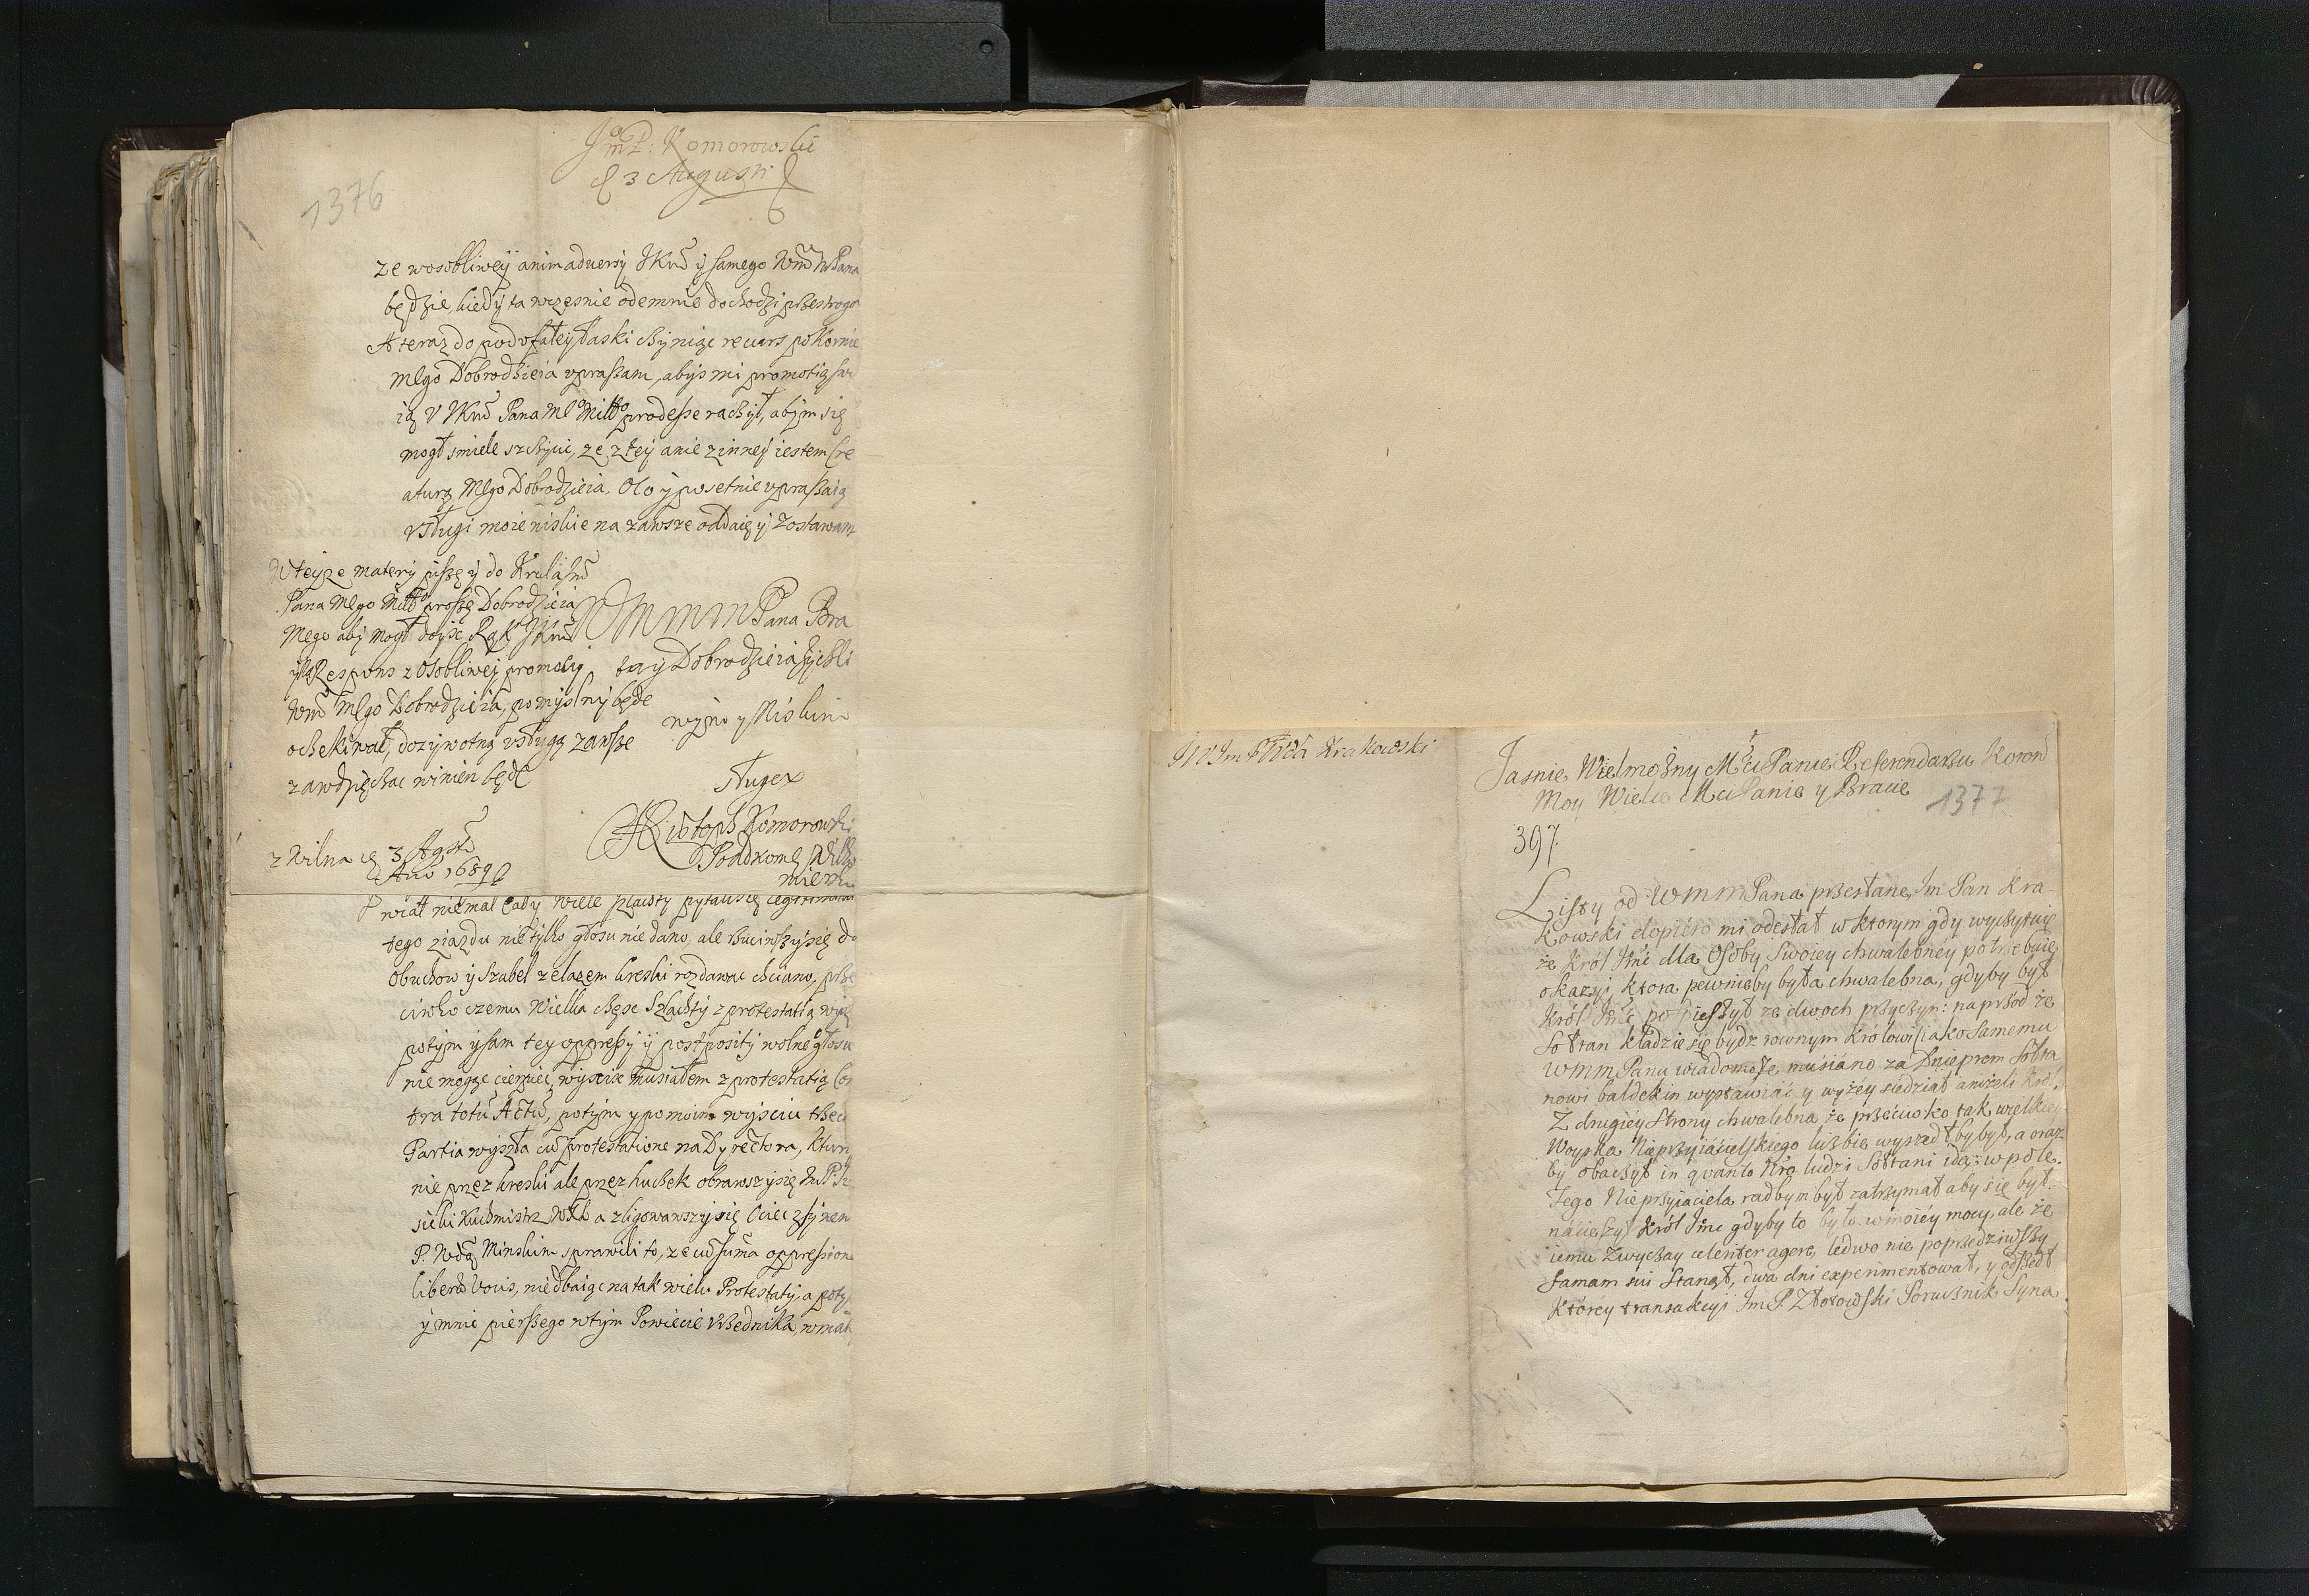 JmP: Komorowski
d 3 Augusti
1376
ze wosobliwey animaduersy JKM y samego WM M Pana
będzie, kiedy ta wczesnie odemnie dochodzi przestroga
A teraz do podufałey łaski czyniąc recurs pokornie
Mego Dobrodzieia upraszam, abys mi promotią sw
ią v JKM Pana Mo Miłło prodesse raczył, abym się
mogł smiele szczycic, ze z tey a nie z inney iestem Cre
aturą Mego Dobrodzieia. Oto y posetnie upraszaią
vsługi moie niskie na zawsze oddaię y zostawam
W teyze matery piszę y do Krola JM
Pana Mego Miłło proszę Dobrodzieia
Mego aby mogł doysc Rąk JKM
y Respons z osobliwey promotiy
WM Mego Dobrodzieia, pomyslny będę
oczekiwał, dozywotnią vsługą zawsze
zawdzięczac winien będę
WMMM Pana Bra
ta y Dobrodzieia zyczli
wym y Niskim
sługą
Krisztoph Komorowski
Podkom Wiłko
mierski
z Wilna d 3 Agsti
Ano 1689
wiał niemal cały wiele szlachty pytaiąc się legitimum
tego ziazdu nie tylko głosu nie dano, ale rzuciwszy się do
obuchow y szabel zelazem kreski rozdawac chciano, prze
ciwko czemu wielka częsc Szlachty z protestatią wysz
potym y sam tey oppressy y postposity wolne głosu
nie mogąc cierpiec, wyscie musiałem z protestatią Con
tra totu Actu, potym y po moim wysciu trzeci
Partia wyszła cu protestatione na Dyrectora, ktury
nie przez kreski ale przez huczek obrawszy się JmP Si
sicki Kuchmistrz WXL a zligowawszy się Ociec z synem
P. Wdą Minskim sprawili to, ze cu suma oppressione
libera Vocis, nie dbaiąc na tak wielu Protestaty, a poty
y mnie pierszego w tym Powiecie Vrzędnika, w mat
JWJmP Wda Krakowski
Jasnie Wielmozny Mci Panie Referendarzu Koron
Moy Wielce Mci Panie y Bracie
1377
397.
Listy od WMM Pana przesłane, Jm Pan Kra-
kowski dopiéro mi odesłał w ktorym gdy wyczytuię
że Król Jmć dla Osoby Swoiey chwalebnéy potrzebuie
okazyi, ktora pewnieby była chwalebna, gdyby był
Król Jmć pospieszył ze dwoch przyczyn: naprzod że
Sołtan kładzie się bydz rownym Krolowi, iako Samemu
WMM Panu wiadomosc, musiano za Dnieprem Sołta
nowi baldekin wystawiać y wyżéy siedział aniżeli Król.
Z drugiéy Strony chwalebna że przeciwko tak wielkiey
Woyska Nieprzyiacielskiego liczbie wyszedłby był, a oraz
by obaczył in quanto Nro ludzi Sołtani idą: w pole.
Tego Nieprzyiaciela radbym był zatrzymał aby się był
nacieszył Król Jmc gdyby to było w moiéy mocy, ale że
iemu zwyczay celeriter agere, ledwo nie poprzedziwszy
famam sui Stanął, dwa dni experimentował, y odszedł
któréy transakcyi Jm P. Złotowski Porucznik Syna